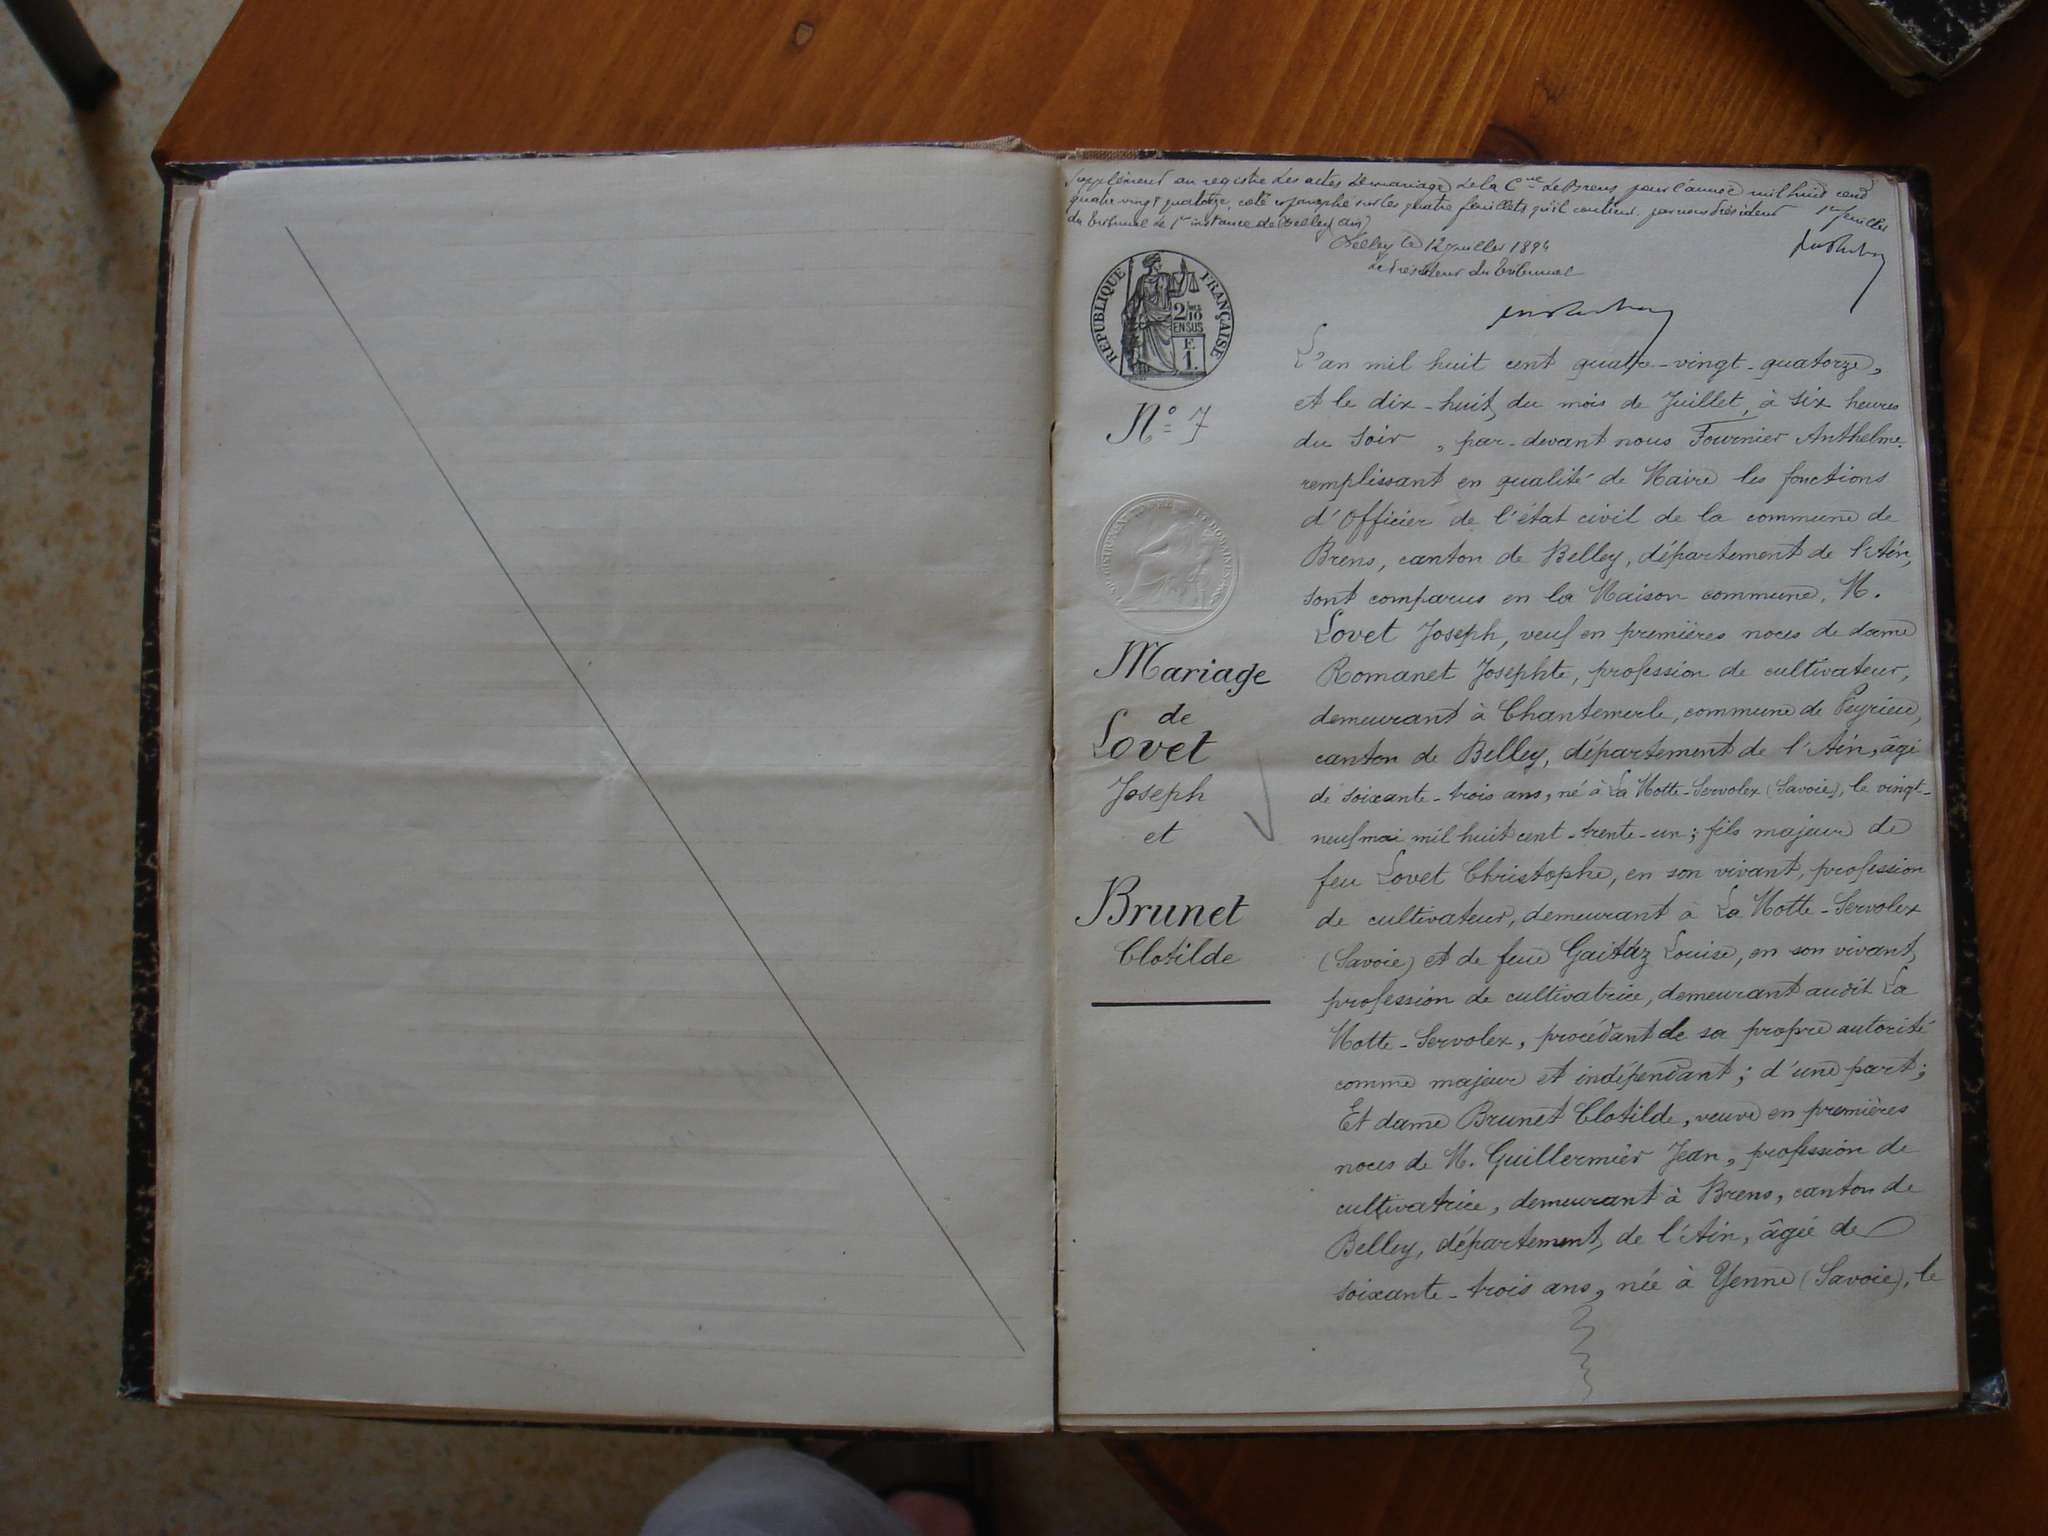 Supplément au registre des actes de mariage de la Cne de Brens pour l'année mil huit cent
quatre vingt quatorze, coté et paraphé sur les quatre feuillets qu'il contient par nous Président 1er feuillet
du tribunal de 1re instance de Belley (Ain)
Belley le 12 Juillet 1894
Le Président du tribunal
REPUBLIQUE FRANÇAISE
2/10
EN SUS
F.
1.
N° 7
Mariage
de
Lovet
Joseph
et
Brunet
Clotilde
L'an mil huit cent quatre-vingt-quatorze,
et le dix-huit du mois de Juillet, à six heures
du soir, par-devant nous Fournier Anthelme
remplissant en qualité de Maire les fonctions
d'Officier de l'état civil de la commune de
Brens, canton de Belley, département de l'Ain,
sont comparus en la Maison commune, M.
Lovet Joseph, veuf en premières noces de dame
Romanet Josephte, profession de cultivateur,
demeurant à Chantemerle, commune de Peyrieu,
canton de Belley, département de l'Ain, âgé
de soixante-trois ans, né à La Motte-Servolex (Savoie), le vingt-
neuf mai mil huit cent-trente-un; fils majeur de
feu Lovet Christophe, en son vivant, profession
de cultivateur, demeurant à La Motte-Servolex
(Savoie) et de feue Gaitáz Louise, en son vivant,
profession de cultivatrice, demeurant audit La
Motte-Servolex, procédant de sa propre autorité
comme majeur et indépendant; d'une part;
Et dame Brunet Clotilde, veuve en premières
noces de M. Guillermier Jean, profession de
cultivatrice, demeurant à Brens, canton de
Belley, département de l'Ain, âgée de
soixante-trois ans, née à Yenne (Savoie), le